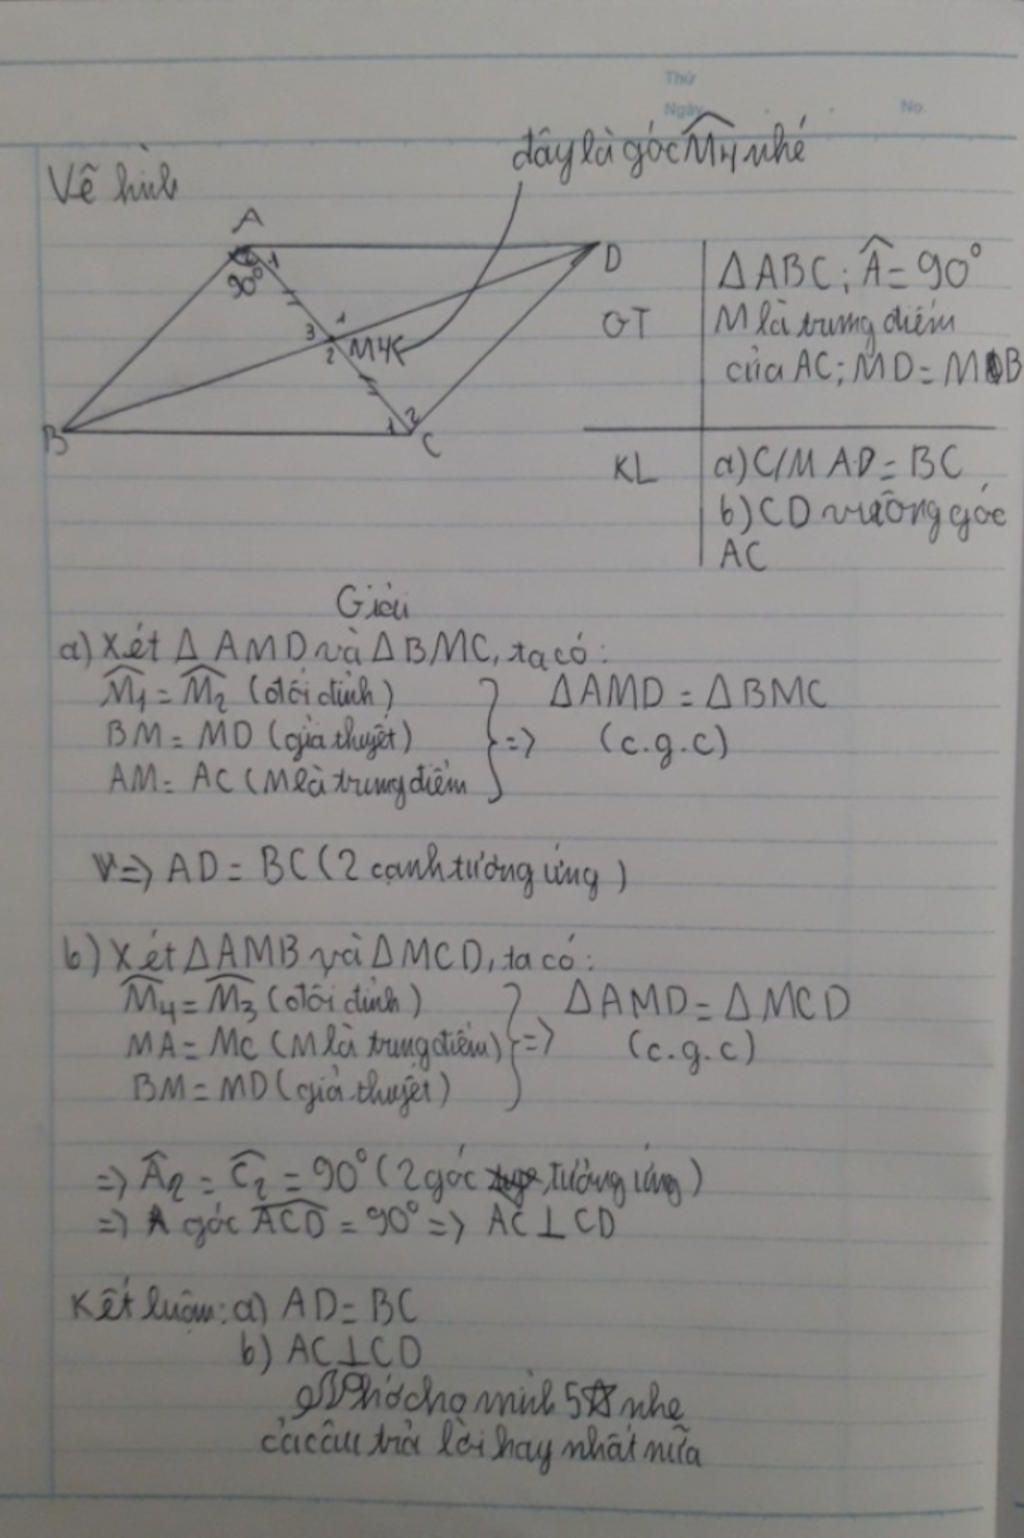 Thứ
Ngày
No.
đây là góc M4 nhé
Vẽ hình
A
90°
1
D
3 1
2 M4
B
1 2
C
GT
ΔABC; Â = 90°
M là trung điểm
của AC; MD = MB
KL
a) C/M AD = BC
b) CD vuông góc
AC
Giải
a) Xét Δ AMD và Δ BMC, ta có:
M̂1 = M̂2 (đối đỉnh)
BM = MD (giả thuyết)
AM = AC (M là trung điểm
=> ΔAMD = ΔBMC
(c.g.c)
=> AD = BC (2 cạnh tương ứng)
b) Xét ΔAMB và ΔMCD, ta có:
M̂4 = M̂3 (đối đỉnh)
MA = MC (M là trung điểm)
BM = MD (giả thuyết)
=> ΔAMD = ΔMCD
(c.g.c)
=> Â2 = Ĉ2 = 90° (2 góc tưởng ứng)
=> góc ACD = 90° => AC ⊥ CD
Kết luận: a) AD = BC
b) AC ⊥ CD
Nhớ cho mình 5☆ nhe
cả câu trả lời hay nhất nữa